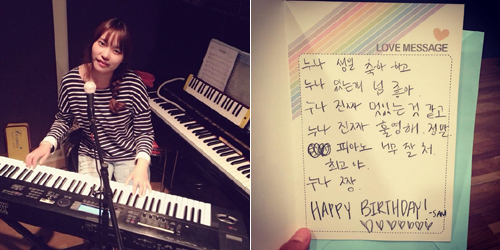 LOVE MESSAGE
누나 생일 축하 하고
누나 없는게 넘 좋아
누나 진짜 멋있는 것 같고
누나 진짜 훌륭해. 정말.
피아노 너무 잘 쳐
최고야.
누나 짱.
HAPPY BIRTHDAY! -SAN